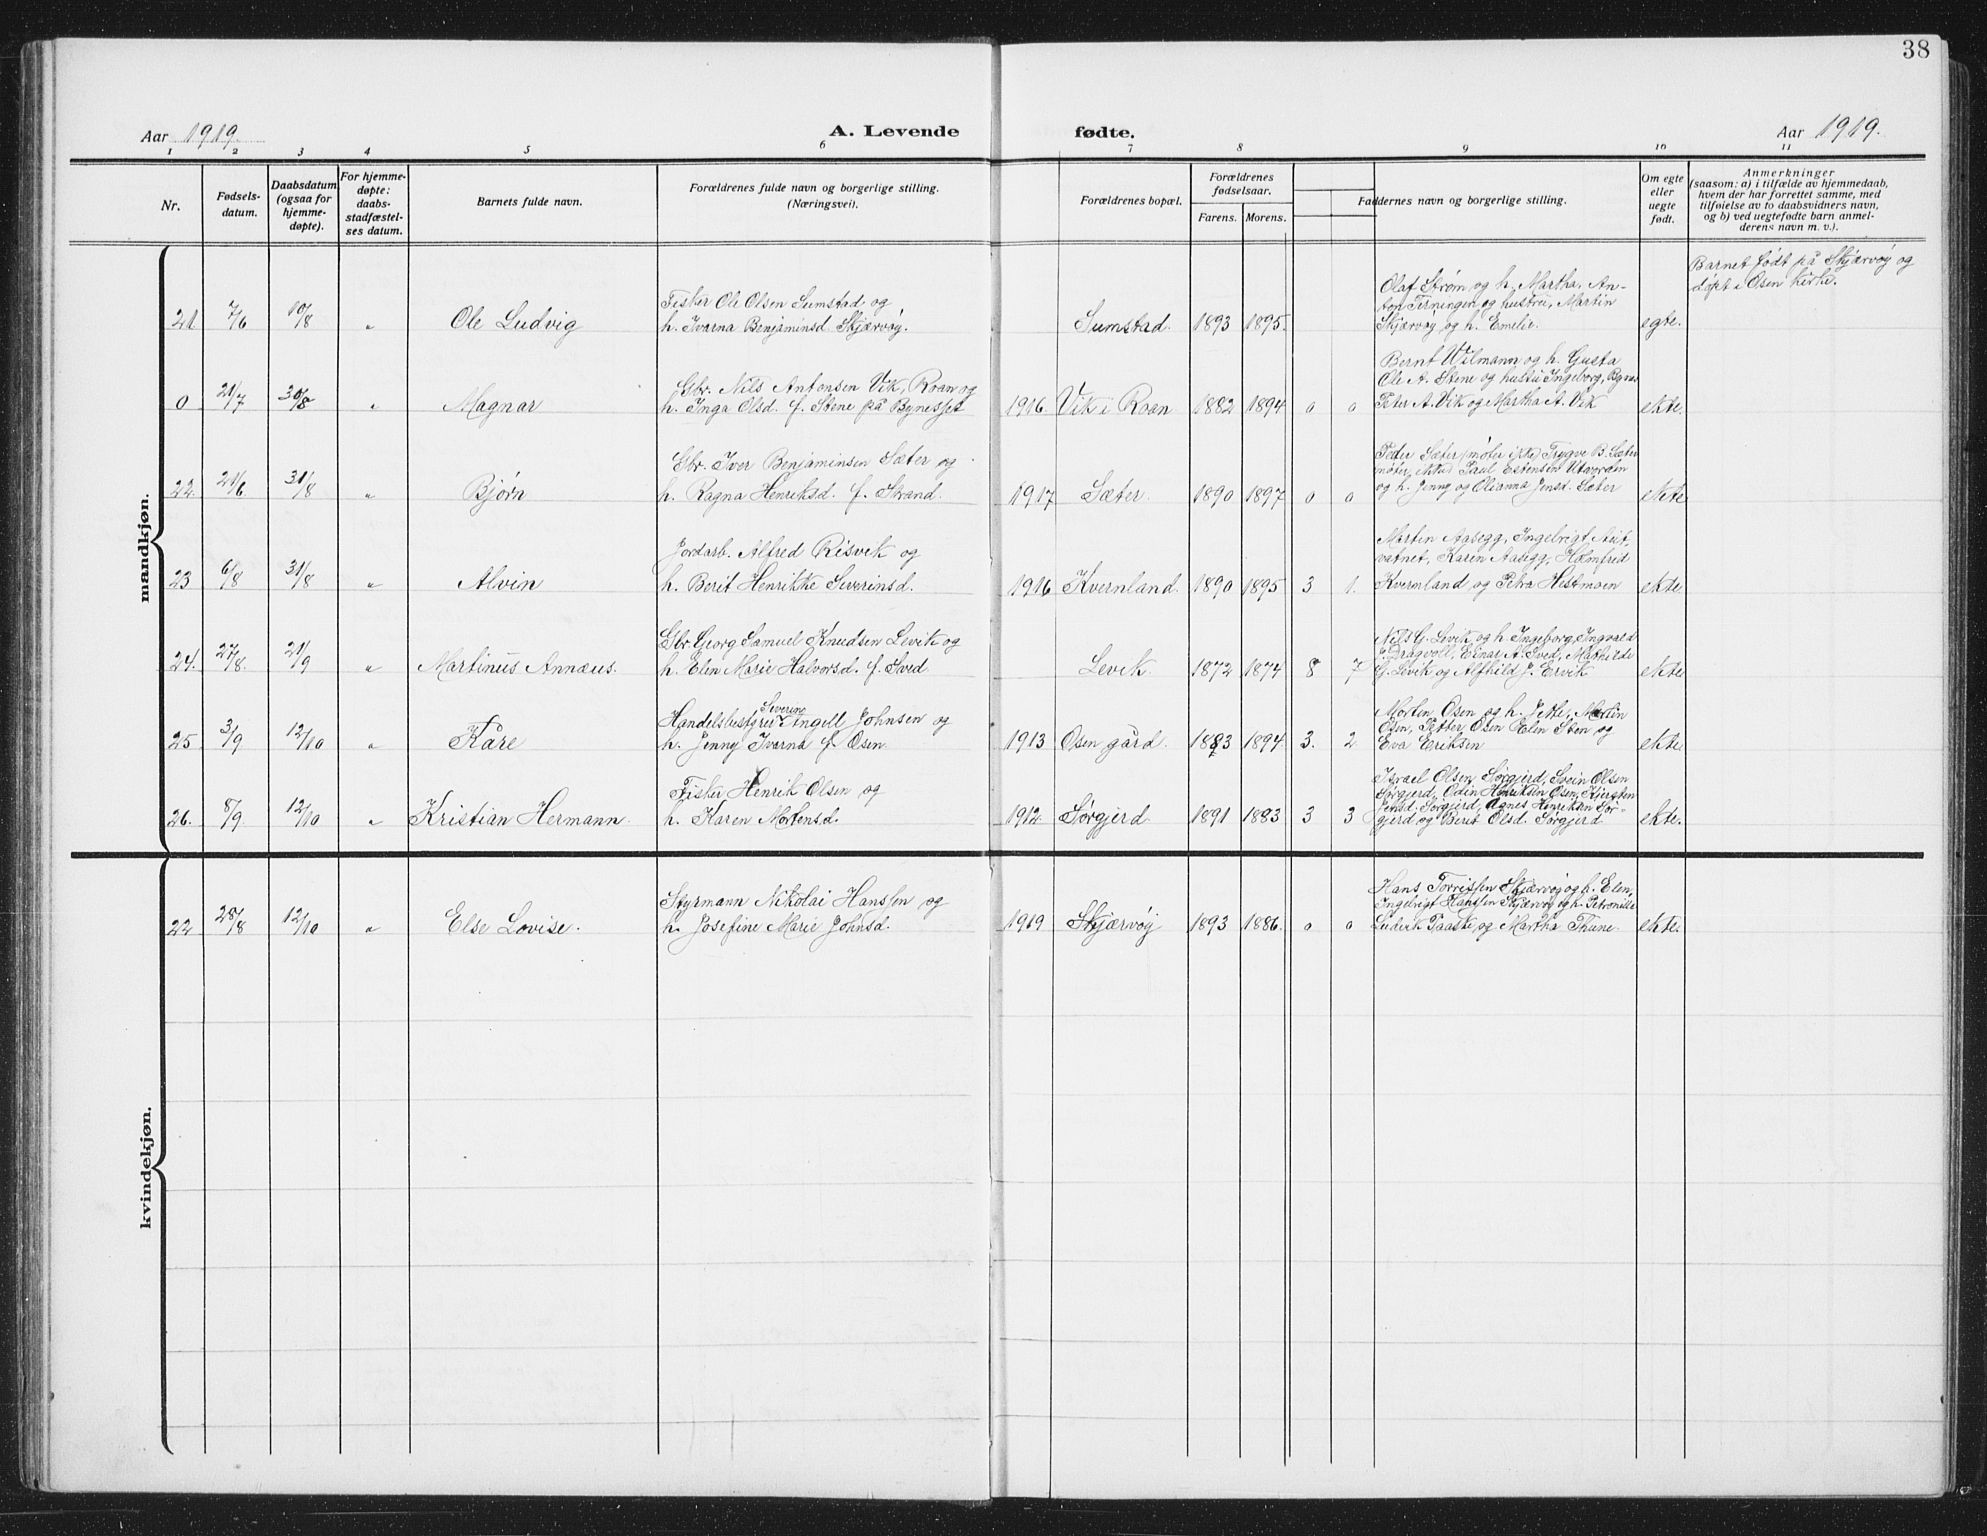 38
Aar 1919. A. Levende fødte. Aar 1919.
1 2 3 4 5 6 7 8 9 10 11
Nr.
Fødsels-
datum.
Daabsdatum
(ogsaa for
hjemme-
døpte).
For hjemme-
døpte:
daabs-
stadfæstel-
ses datum.
Barnets fulde navn.
Forældrenes fulde navn og borgerlige stilling.
(Næringsvei).
Forældrenes bopæl.
Forældrenes
fødselsaar.
Farens. Morens.
Faddernes navn og borgerlige stilling.
Om egte
eller
uegte
født.
Anmerkninger
(saasom: a) i tilfælde av hjemmedaab,
hvem der har forrettet samme, med
tilføielse av to daabsvidners navn,
og b) ved uegtefødte barn anmel-
derens navn m. v.).
mandkjøn.
21 7/6 10/8 " Ole Ludvig
Fisker Ole Olsen Sumstad og
h. Ivarna Benjaminsd. Skjærvøy.
Sumstad. 1893 1895.
Olaf Strøm og h. Martha, An-
ton Terningen og hustru, Martin
Skjærvøy og h. Emelie.
egte.
Barnet født på Skjærvøy og
døpt i Osen kirke.
0 21/7 30/8 " Magnar
Gbr. Nils Antonsen Vik, Roan og
h. Inga Olsd. f. Stene på Bynesset
1916. Vik i Roan 1882 1894 0 0
Bernt Wilmann og h. Gusta
Ole A. Stene og hustru Ingeborg, Bynes
Peter A. Vik og Martha A. Vik
ekte.
22. 21/6 31/8 " Bjørn
Gbr. Iver Benjaminsen Sæter og
h. Ragna Henriksd. f. Strand.
1917 Sæter. 1890 1897 0 0
Peder Sæter (møter ikke) Trygve B. Sæter
møter, ekkd Paul Estensen
og h. Jenny og Olianna Jensd. Sæter
ekte
23 6/8 31/8 " Alvin
Jordarb. Alfred Risvik og
h. Berit Henrikke Severinsd.
1916 Kvernland. 1890 1895 3 1.
Martin Aasegg, Ingebrigt Aut-
vatnet, Karen Aasegg, Holmfrid
Kvernland og Petra Hestmoen
ekte
24. 27/8. 21/9 " Martinus Annæus.
Gbr. Georg Samuel Knudsen Levik og
h. Elen Marie Halvorsd. f. Sved
Levik. 1872 1874 8 7
Nils G. Levik og h. Ingeborg, Ingvald
Dragvoll, Einar A. Sved, Mathilde
G. Levik og Alfhild J. Ervik
ekte
25 3/9 12/10 " Kåre
Severin
Handelsbestyrer Ingell Johnsen og
h. Jenny Ivarna f. Osen.
1913 Osen gård. 1883 1894 3. 2
Morten Osen og h. Jette, Martin
Osen, Petter Osen Elen Sten og
Eva Eriksen
ekte
26. 8/9. 12/10 " Kristian Hermann.
Fisker Henrik Olsen og
h. Karen Mortensd.
1912. Sørgjerd. 1891 1883 3 3
Israel Olsen Sørgjerd, Svein Olsen
Sørgjerd, Odin Henriksen Osen, Kjersten
Jensd. Sørgjerd, Agnes Henriksen Sør-
gjerd og Berit Olsd. Sørgjerd
ekte.
kvindekjøn.
22 28/8 12/10 " Else Lovise.
Styrmann Nikolai Hanssen og
h. Josefine Marie Johnsd.
1919 Skjærvøy 1893 1886. 0 0
Hans Torrissen Skjærvøy og h. Elen,
Ingebrigt Hanssen Skjærvøy og h. Petronille
Luderk Paaske og Martha Thune.
ekte.